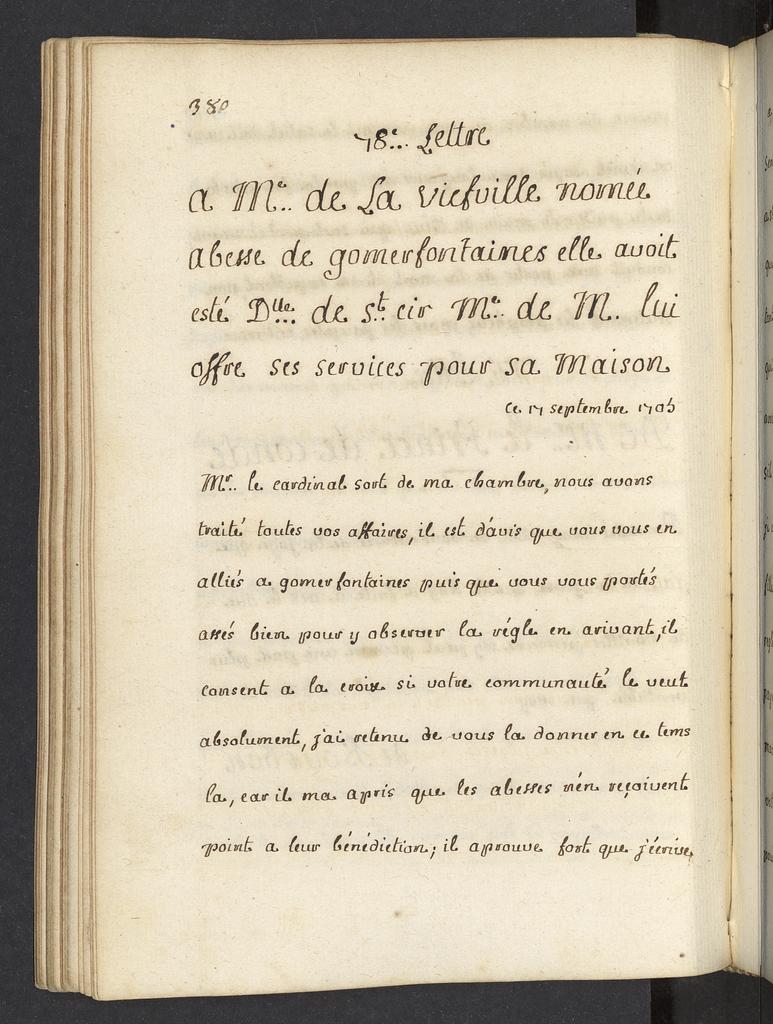 380
78e.. Lettre
a Me.. de La viefville nomée
abesse de gomerfontaines elle avoit
esté Dlle.. de st. cir Me. de M. lui
offre ses services pour sa Maison
ce 17 septembre 1705
Mr.. le cardinal sort de ma chambre, nous avons
traité toutes vos affaires, il est d'avis que vous vous en
alliés a gomerfontaines puis que vous vous portés
assés bien pour y observer la régle en arivant, il
consent a la croix si votre communauté le veut
absolument, j'ai retenu de vous la donner en ce tems
la, car il ma apris que les abesses n'en reçoivent
point a leur bénédiction; il aprouve fort que j'écrive